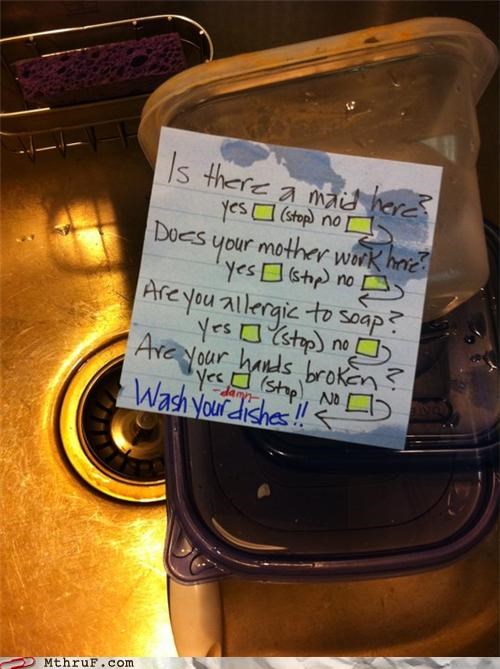 Is there a maid here?
yes (stop) no
Does your mother work here?
yes (stop) no
Are you allergic to soap?
yes (stop) no
Are your hands broken?
yes (stop) No
-damn-
Wash your dishes!!
MthruF.com